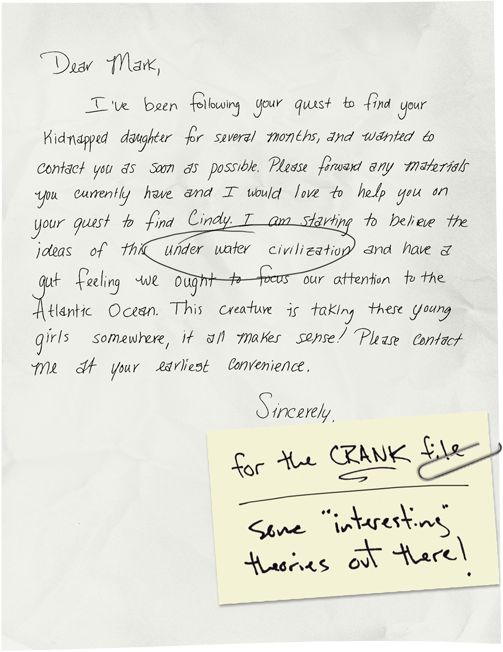 Dear Mark,
I've been following your quest to find your
kidnapped daughter for several months, and wanted to
contact you as soon as possible. Please forward any materials
you currently have and I would love to help you on
your quest to find Cindy. I am starting to believe the
ideas of this under water civilization and have a
gut feeling we ought to focus our attention to the
Atlantic Ocean. This creature is taking these young
girls somewhere, it all makes sense! Please contact
me at your earliest convenience.
Sincerely,
for the CRANK file
some "interesting"
theories out there!